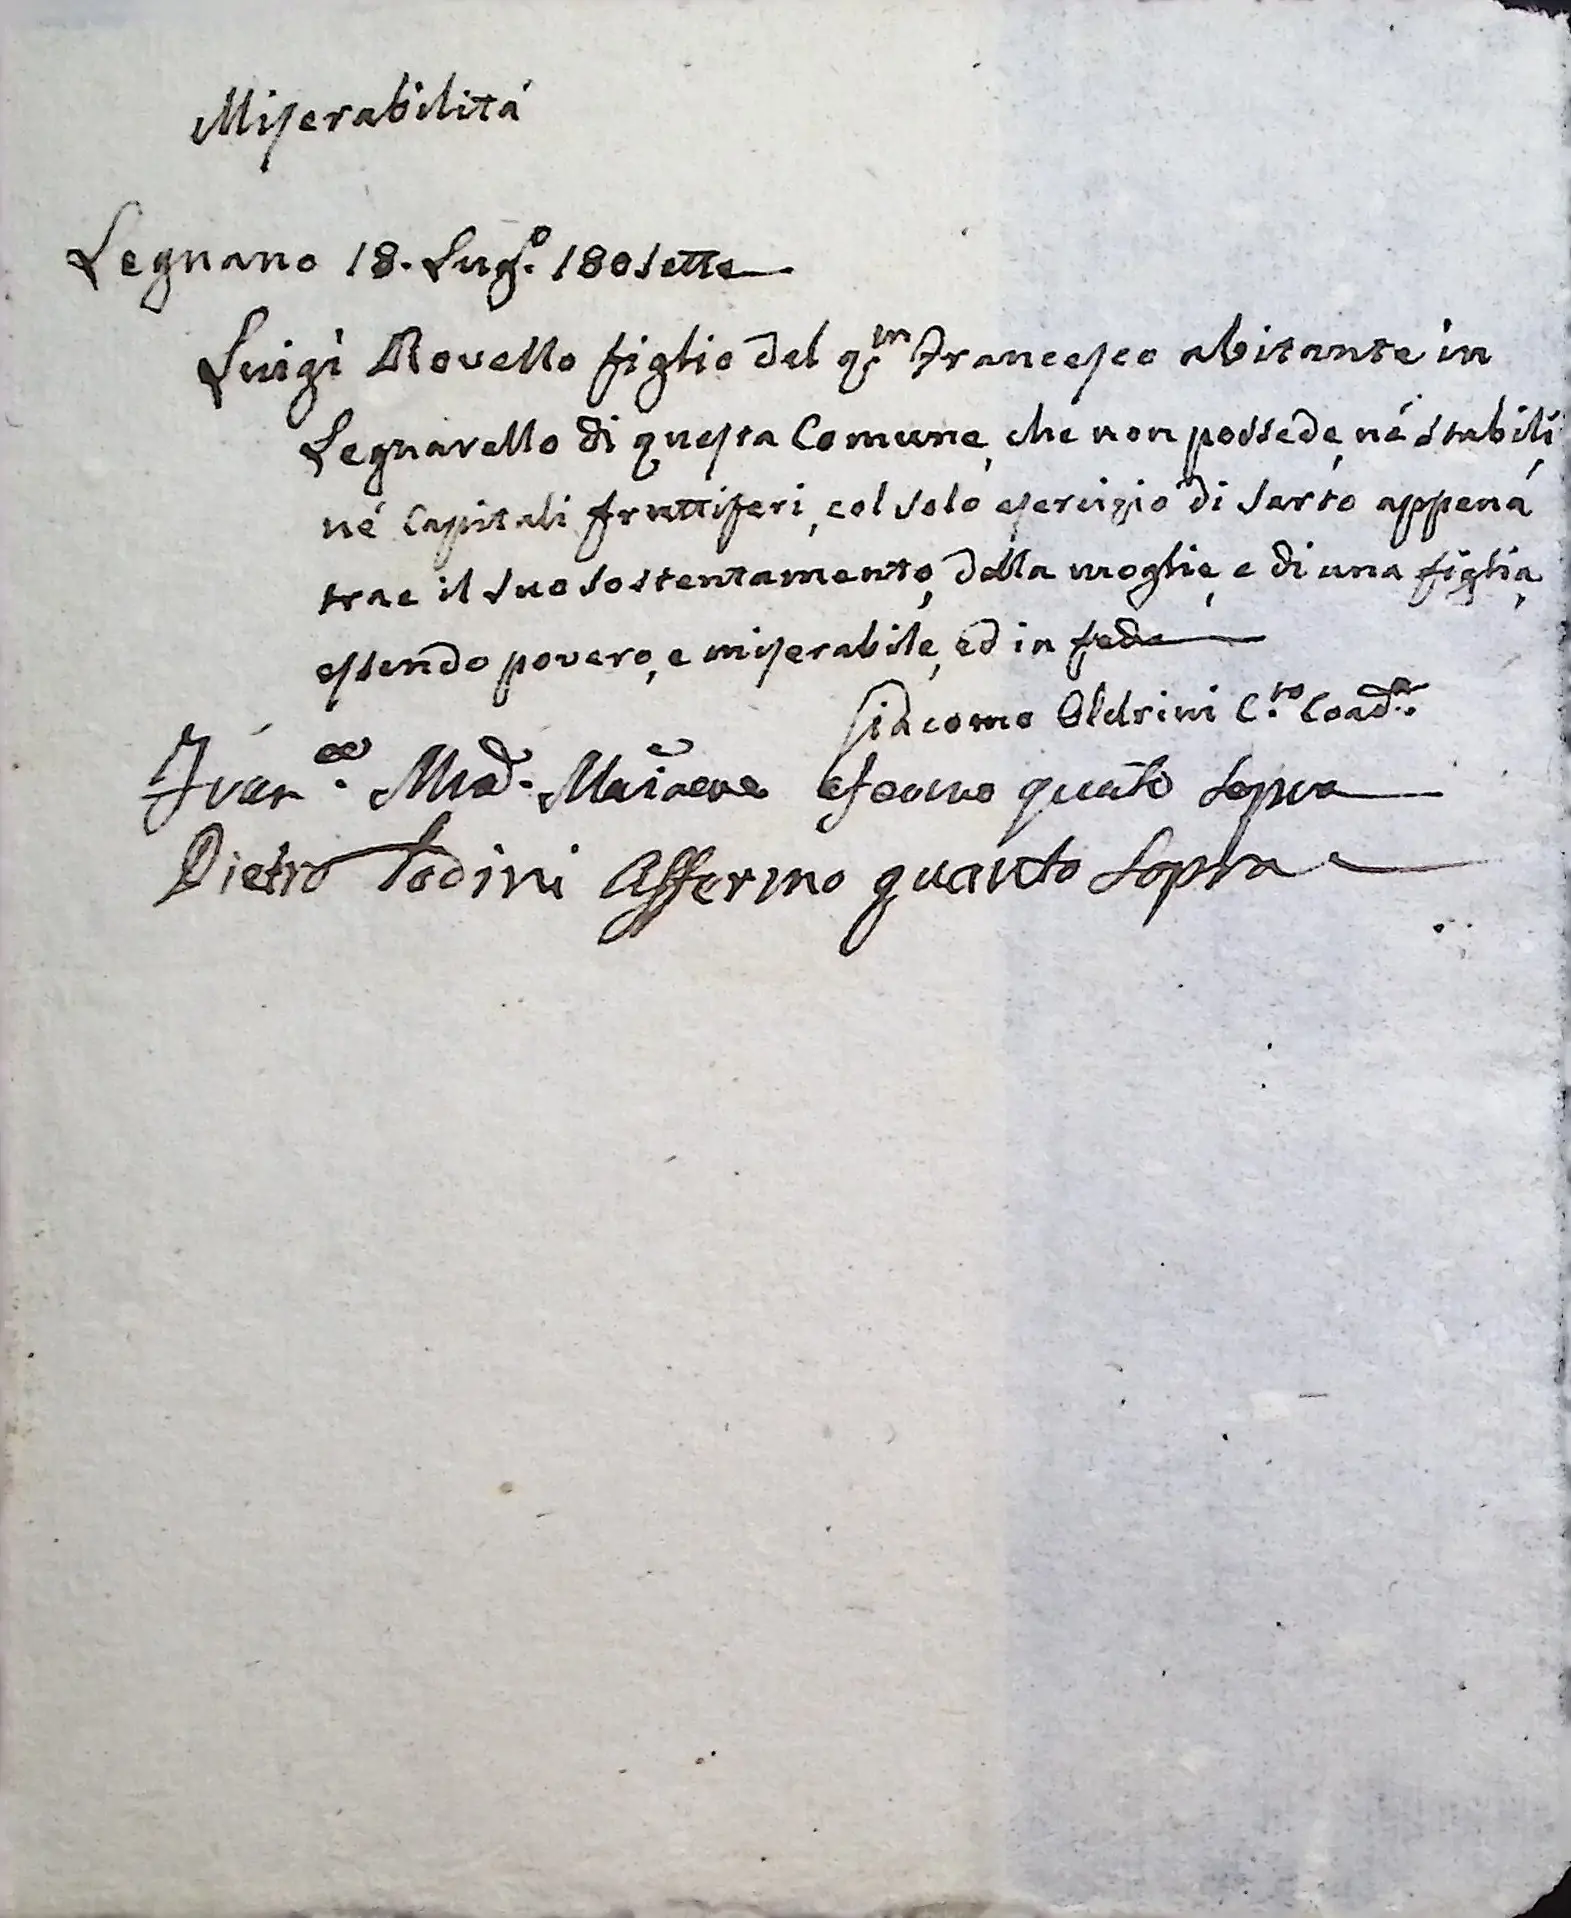 Miserabilitá
Legnano 18. Lug.º 180sette
Luigi Rovello figlio del q.m Francesco abitante in
Legnarello di questa Comune, che non possede, né stabili,
né Capitali fruttiferi, col solo esercizio di Sarto appena
trae il suo sostentamento, della moglie, e di una figlia,
essendo povero, e miserabile, ed in fede
Giacomo Oldrini C.ro Coad.re
quãto sopra
Pietro Todini Affermo quanto sopra